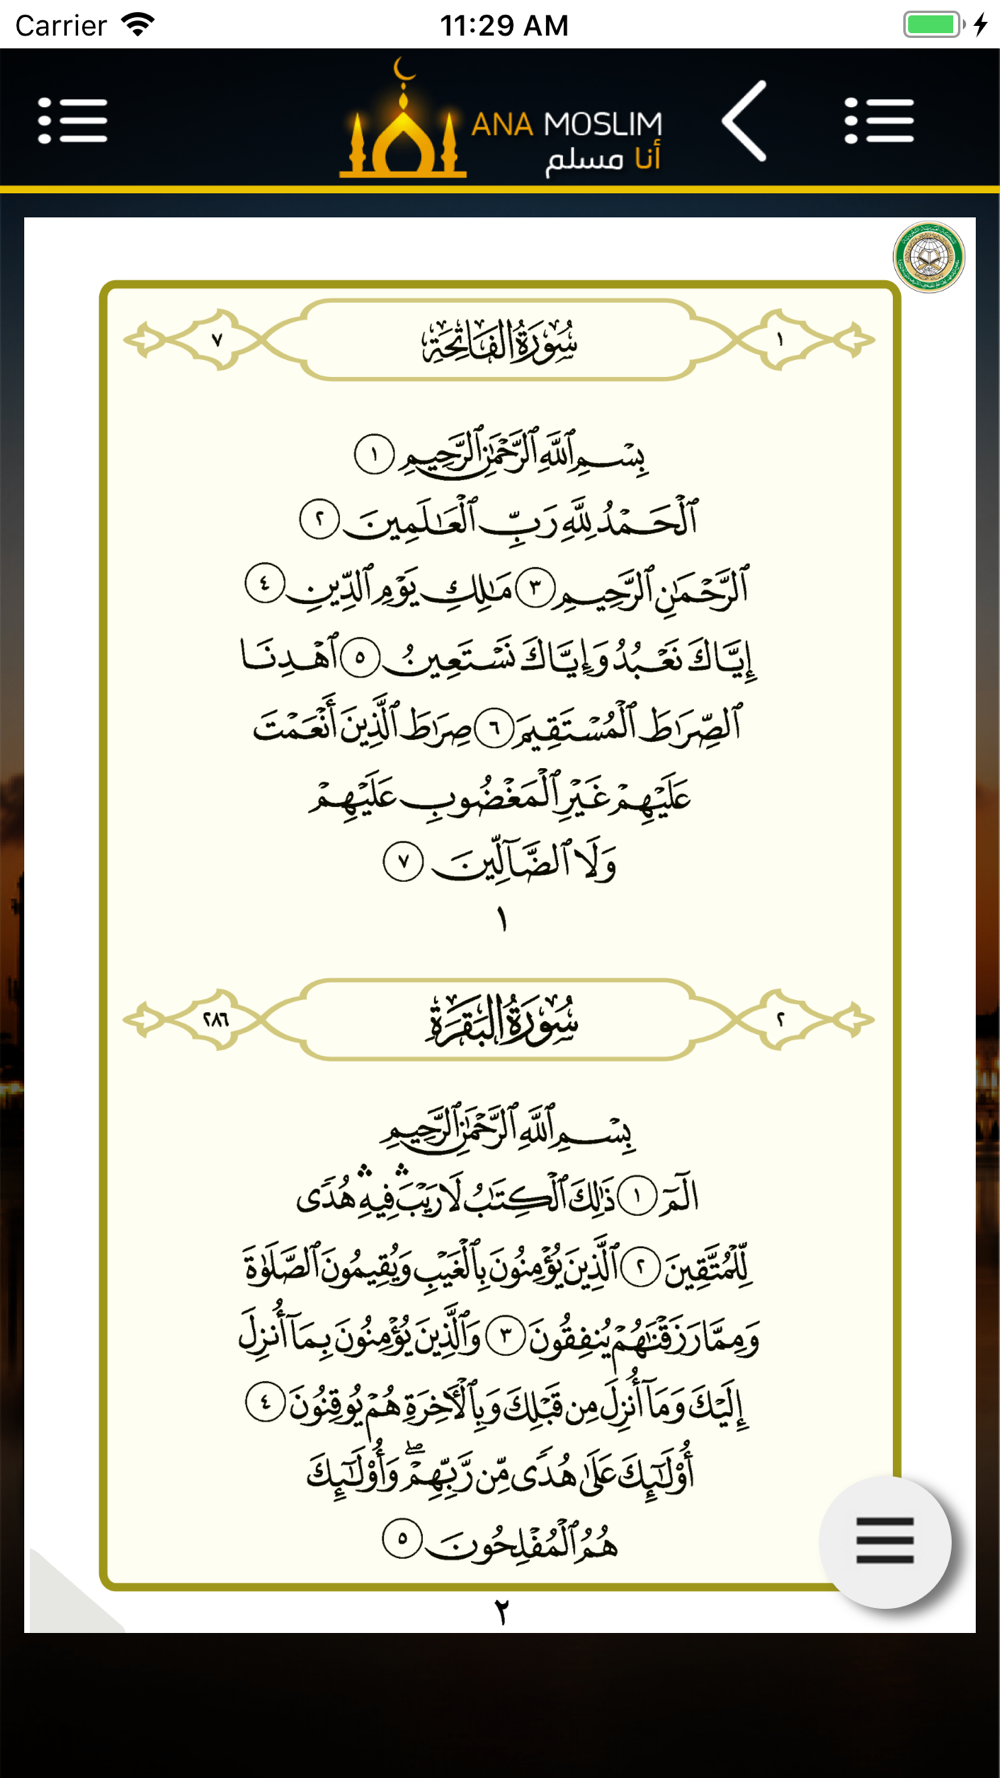 Carrier 11:29 AM
ANA MOSLIM
أنا مسلم
١ سُورَةُ الفَاتِحَةِ ٧
بِسْمِ ٱللَّهِ ٱلرَّحْمَٰنِ ٱلرَّحِيمِ ١
ٱلْحَمْدُ لِلَّهِ رَبِّ ٱلْعَٰلَمِينَ ٢
ٱلرَّحْمَٰنِ ٱلرَّحِيمِ ٣ مَٰلِكِ يَوْمِ ٱلدِّينِ ٤
إِيَّاكَ نَعْبُدُ وَإِيَّاكَ نَسْتَعِينُ ٥ ٱهْدِنَا
ٱلصِّرَٰطَ ٱلْمُسْتَقِيمَ ٦ صِرَٰطَ ٱلَّذِينَ أَنْعَمْتَ
عَلَيْهِمْ غَيْرِ ٱلْمَغْضُوبِ عَلَيْهِمْ
وَلَا ٱلضَّآلِّينَ ٧
١
٢ سُورَةُ البَقَرَةِ ٢٨٦
بِسْمِ ٱللَّهِ ٱلرَّحْمَٰنِ ٱلرَّحِيمِ
الٓمٓ ١ ذَٰلِكَ ٱلْكِتَٰبُ لَا رَيْبَ ۛ فِيهِ ۛ هُدًى
لِّلْمُتَّقِينَ ٢ ٱلَّذِينَ يُؤْمِنُونَ بِٱلْغَيْبِ وَيُقِيمُونَ ٱلصَّلَوٰةَ
وَمِمَّا رَزَقْنَٰهُمْ يُنفِقُونَ ٣ وَٱلَّذِينَ يُؤْمِنُونَ بِمَآ أُنزِلَ
إِلَيْكَ وَمَآ أُنزِلَ مِن قَبْلِكَ وَبِٱلْأَخِرَةِ هُمْ يُوقِنُونَ ٤
أُوْلَٰٓئِكَ عَلَىٰ هُدًى مِّن رَّبِّهِمْ ۖ وَأُوْلَٰٓئِكَ
هُمُ ٱلْمُفْلِحُونَ ٥
٢